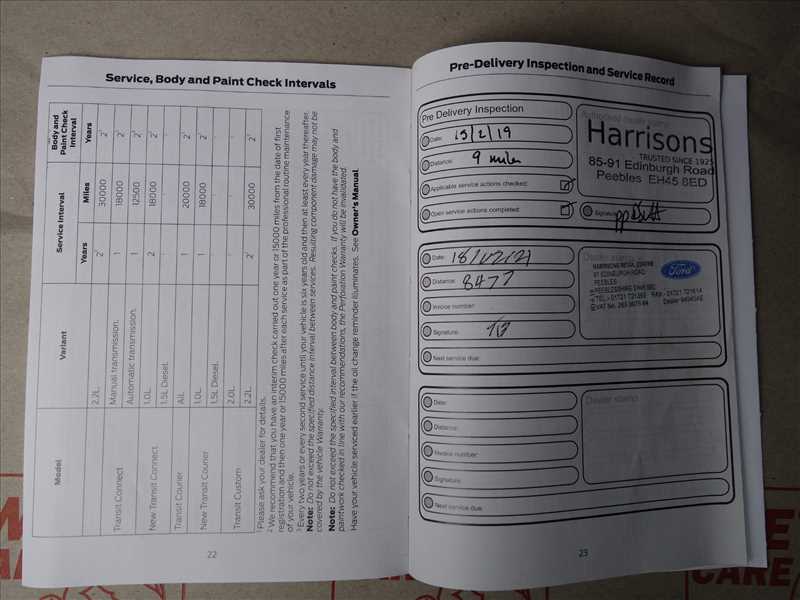 Service, Body and Paint Check Intervals
Model
Variant
Service Interval
Body and Paint Check Interval
Years
Miles
Years
2.2L.
2
30000
2
Transit Connect
Manual transmission.
1
18000
2
Automatic transmission.
1
12500
2
New Transit Connect
1.0L.
2
18000
2
1.5L Diesel.
Transit Courier
All.
1
20000
2
New Transit Courier
1.0L
1
18000
2
1.5L Diesel.
Transit Custom
2.0L
2.2L.
2
30000
2
1 Please ask your dealer for details.
2 We recommend that you have an interim check carried out one year or 15000 miles from the date of first
registration and then one year or 15000 miles after each service as part of the professional routine maintenance
of your vehicle.
3 Every two years or every second service until your vehicle is six years old and then at least every year thereafter.
Note: Do not exceed the specified distance interval between services. Resulting component damage may not be
covered by the vehicle Warranty.
Note: Do not exceed the specified interval between body and paint checks. If you do not have the body and
paintwork checked in line with our recommendations, the Perforation Warranty will be invalidated.
Have your vehicle serviced earlier if the oil change reminder illuminates. See Owner's Manual.
22
Pre-Delivery Inspection and Service Record
Pre Delivery Inspection
Date: 15/2/19
Distance: 9 miles
Applicable service actions checked:
Open service actions completed:
Authorised dealer stamp
Harrisons
TRUSTED SINCE 1925
85-91 Edinburgh Road
Peebles EH45 8ED
Signature
Date: 18/02/21
Distance: 8477
Invoice number:
Signature:
Next service due:
Dealer stamp
HARRISONS
EDINBURGH ROAD
PEEBLES
Ford
Date:
Distance:
Invoice number:
Signature:
Next service due:
Dealer stamp
23
CARE
CARE